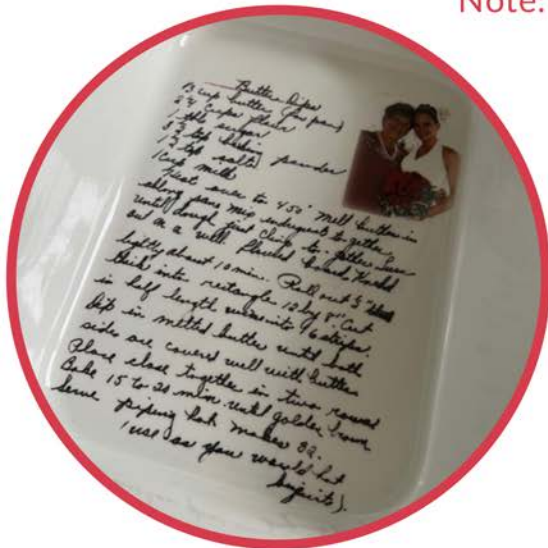 Note:
Butter Dips
⅓ cup butter (for pan)
2 ¼ cups flour
1 tbl sugar
3 ½ tsp baking powder
1 ½ tsp salt
1 cup milk
Heat oven to 450° Melt butter in
oblong pan mix ingredients together
until dough just clings together. Turn
out on a well floured board. Knead
lightly about 10 min. Roll out ½"
thick into rectangle 12 by 8". Cut
in half length 16 strips.
Dip in melted butter until both
sides are covered well with butter
Place close together in two rows
Bake 15 to 20 min. until golden brown
Serve piping hot makes 32.
(use as you would hot